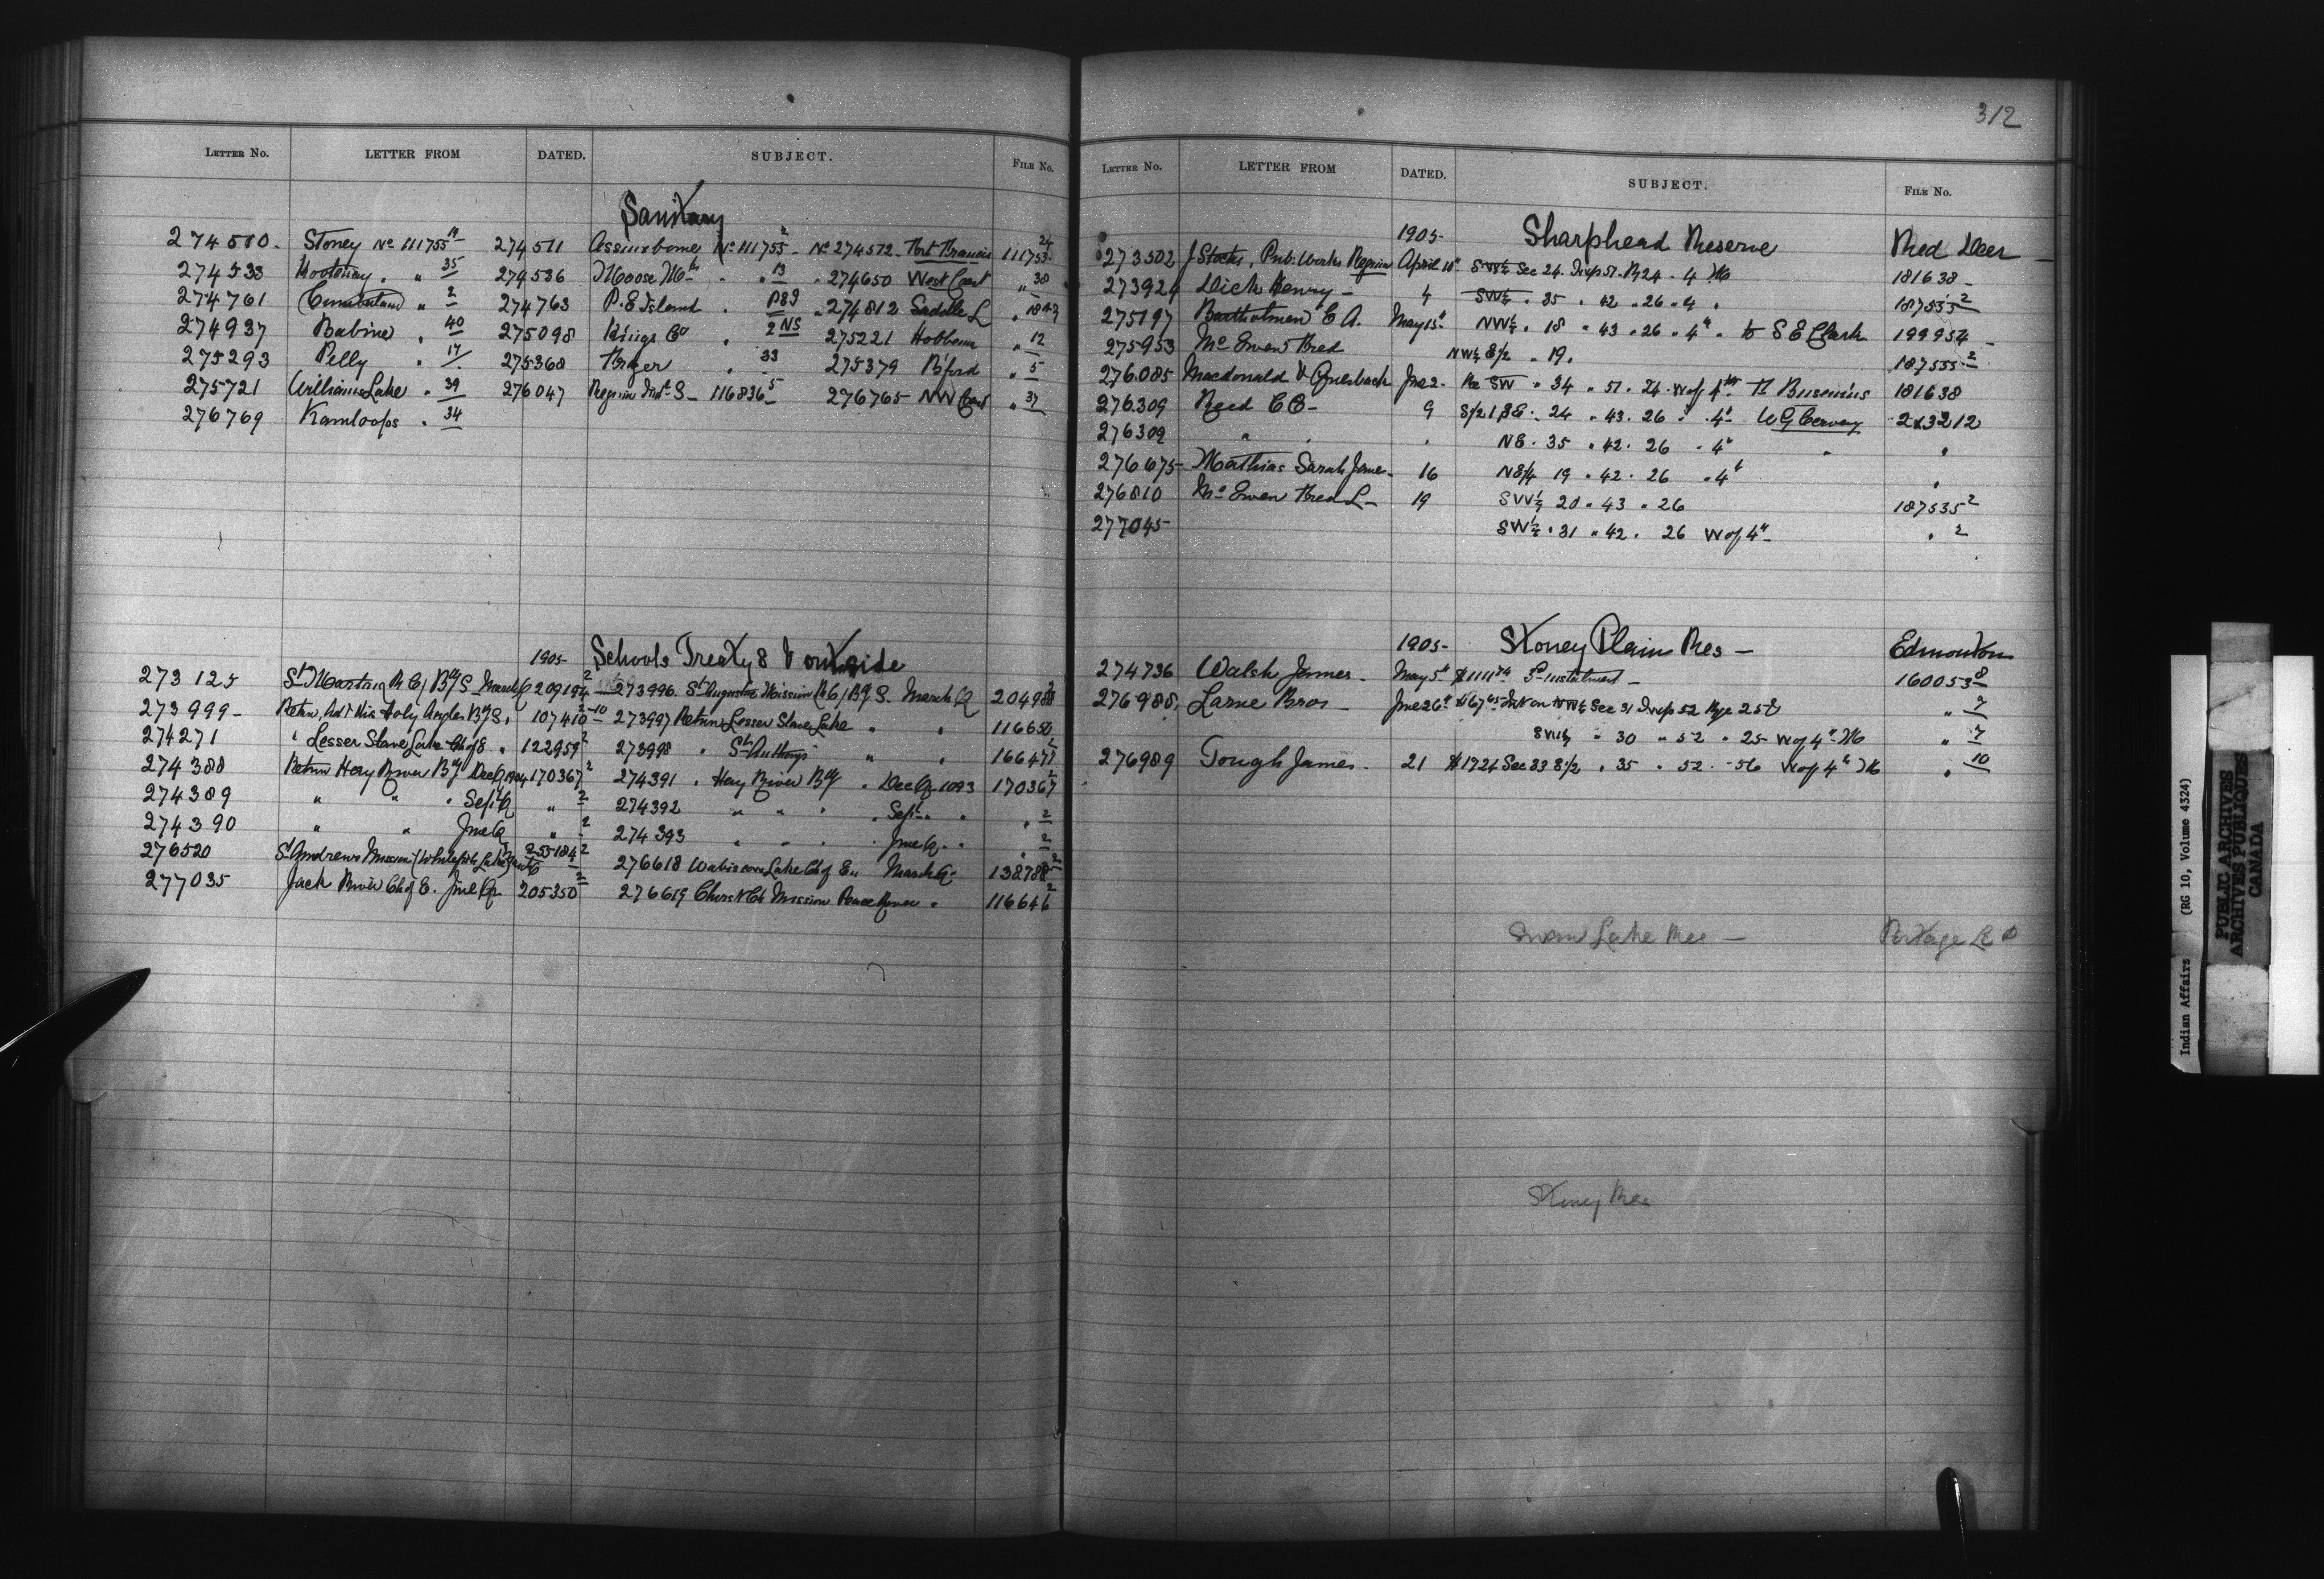 LETTER No. LETTER FROM DATED. SUBJECT. FILE No.
Sanitary
274510. Stoney No 111755 14 274511 Assiniboine No 111755 2 No 274512 Fort Frances 111755 24
274533 Kootenay . " 35 274536 Moose Mtn . " 13 . 274650 West Coast " 38
274761 Cumberland " 2 274763 P. E Island . P89 " 274812 Saddle L
274937 Babine . 40 275098 Kings Co . 2 NS 275221 Hobbema " 12
275293 Pelly . 17 275368 Fraser . 33 275379 B'ford " 5
275721 Williams Lake . 39 276047 Regina Ind. S - 116836 5 276765 NW Coast " 37
276769 Kamloops . 34
1905- Schools Treaty 8 & outside
273125 St Martins R C, Bdg S March Q 209194 2 273996. St Augustine Mission R C, Bdg S. March Q 204988
273999- Return, Holy Angles Bdg S. 107410-10 273997 Return Lesser Slave Lake " . 116650
274271 " Lesser Slave Lake Ch of E. " 122959 2 273998 . St Anthonys " . 166477
274388 Return Hay River Bdg Dec Q 1904 170367 2 274391 . Hay River Bdg . Dec Q 1093 170367 2
274389 " " . Sept Q " 2 274392 " " . . Sept " . . 2
274390 " " June Q " 2 274393 " . . June Q. . . 2
276520 St Andrews Mission (Whitefish Lake) 255184 2 276618 Wabiscow Lake Ch of En March Q 138788 2
277035 Jack River Ch of E. June Q 205350 2 276619 Christ Ch Mission Peace River . 116646 2
312
LETTER No. LETTER FROM DATED. SUBJECT. FILE No.
1905- Sharphead Reserve Red Deer
273502 J Stocks, Pub. Works Regina April 10" SW¼ Sec 24. Twp 51. R 24 . 4 M 181638 -
273924 Dick Henry - 4 SW¼ . 35 . 42 . 26 . 4 . 187535 2
275197 Bartholmew C A. May 15" NW¼ . 18 " 43 . 26 . 4" . to S E Clark 199954 -
275953 McEwen Fred NW¼ E½ . 19. 187535 2
276085 Macdonald & Griesbach June 2- Re SW " 34 . 51. 24. W of 4th 181638
276309 Reed C C - 9 24 . 43. 26 . 4" W G 213212
276309 " . . NE. 35 . 42. 26 . 4" " "
276675- Mathias Sarah Jane. 16 NE¼ 19 . 42. 26 . 4" "
276810 McEwen Fred L- 19 SW¼ 20 . 43 . 26 187535 2
277045- SW¼ . 31 . 42. 26 W of 4" . 2
1905- Stoney Plain Res - Edmonton
274736 Walsh James - May 5" Instalment - 160053 8
276988, Larue Bros - June 26" $67 Int on NW¼ Sec 31 Twp 52 Rge 25 " 7
SW¼ " 30 " 52 " 25 W of 4" M " 7
276989 Tough James. 21 $1724 Sec 33 S½ . 35 . 52. W of 4" M " 10
Swan Lake Res - Portage La P
Stoney Res
Indian Affairs (RG 10, Volume 4324)
PUBLIC ARCHIVES
ARCHIVES PUBLIQUES
CANADA